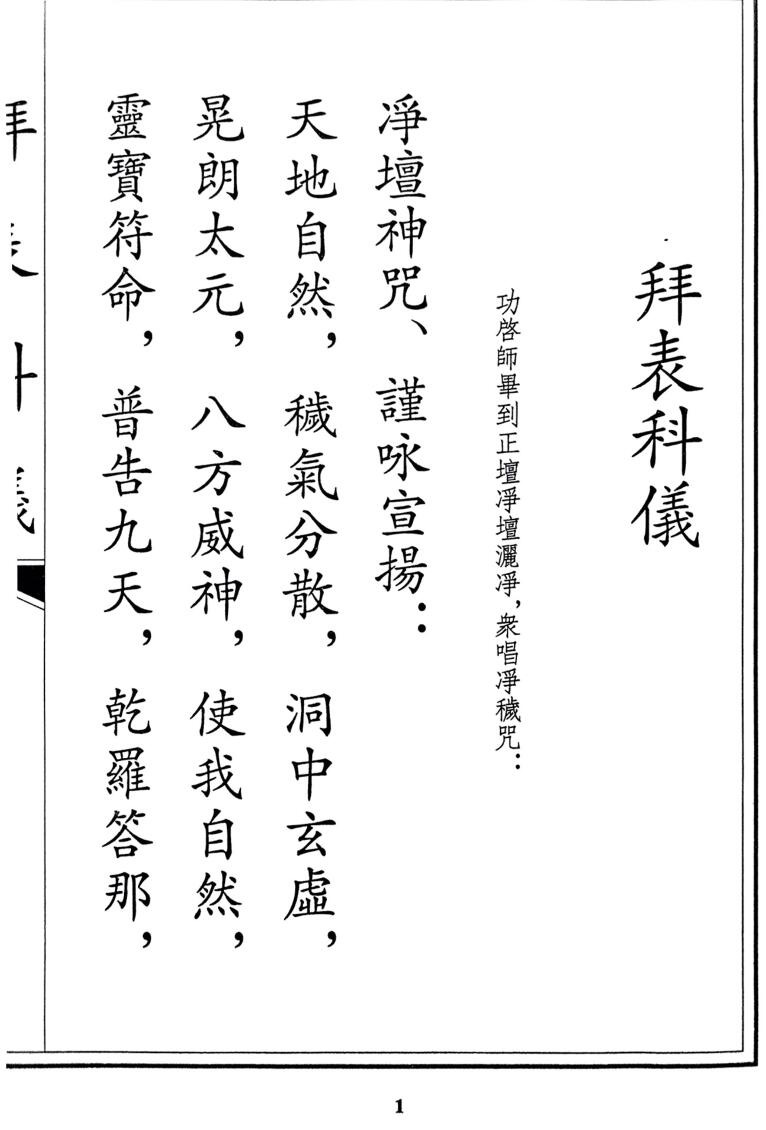 拜表科儀
功啓師畢到正壇凈壇灑凈，衆唱凈穢咒：
凈壇神咒、謹咏宣揚：
天地自然，穢氣分散，洞中玄虛，
晃朗太元，八方威神，使我自然，
靈寶符命，普告九天，乾羅答那，
拜表科儀
1